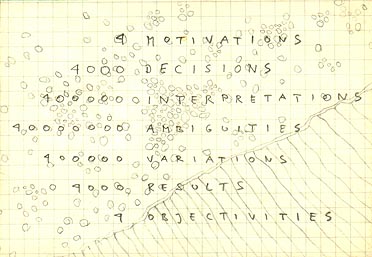 4 MOTIVATIONS
4000 DECISIONS
400000 INTERPRETATIONS
40000000 AMBIGUITIES
400000 VARIATIONS
4000 RESULTS
4 OBJECTIVITIES